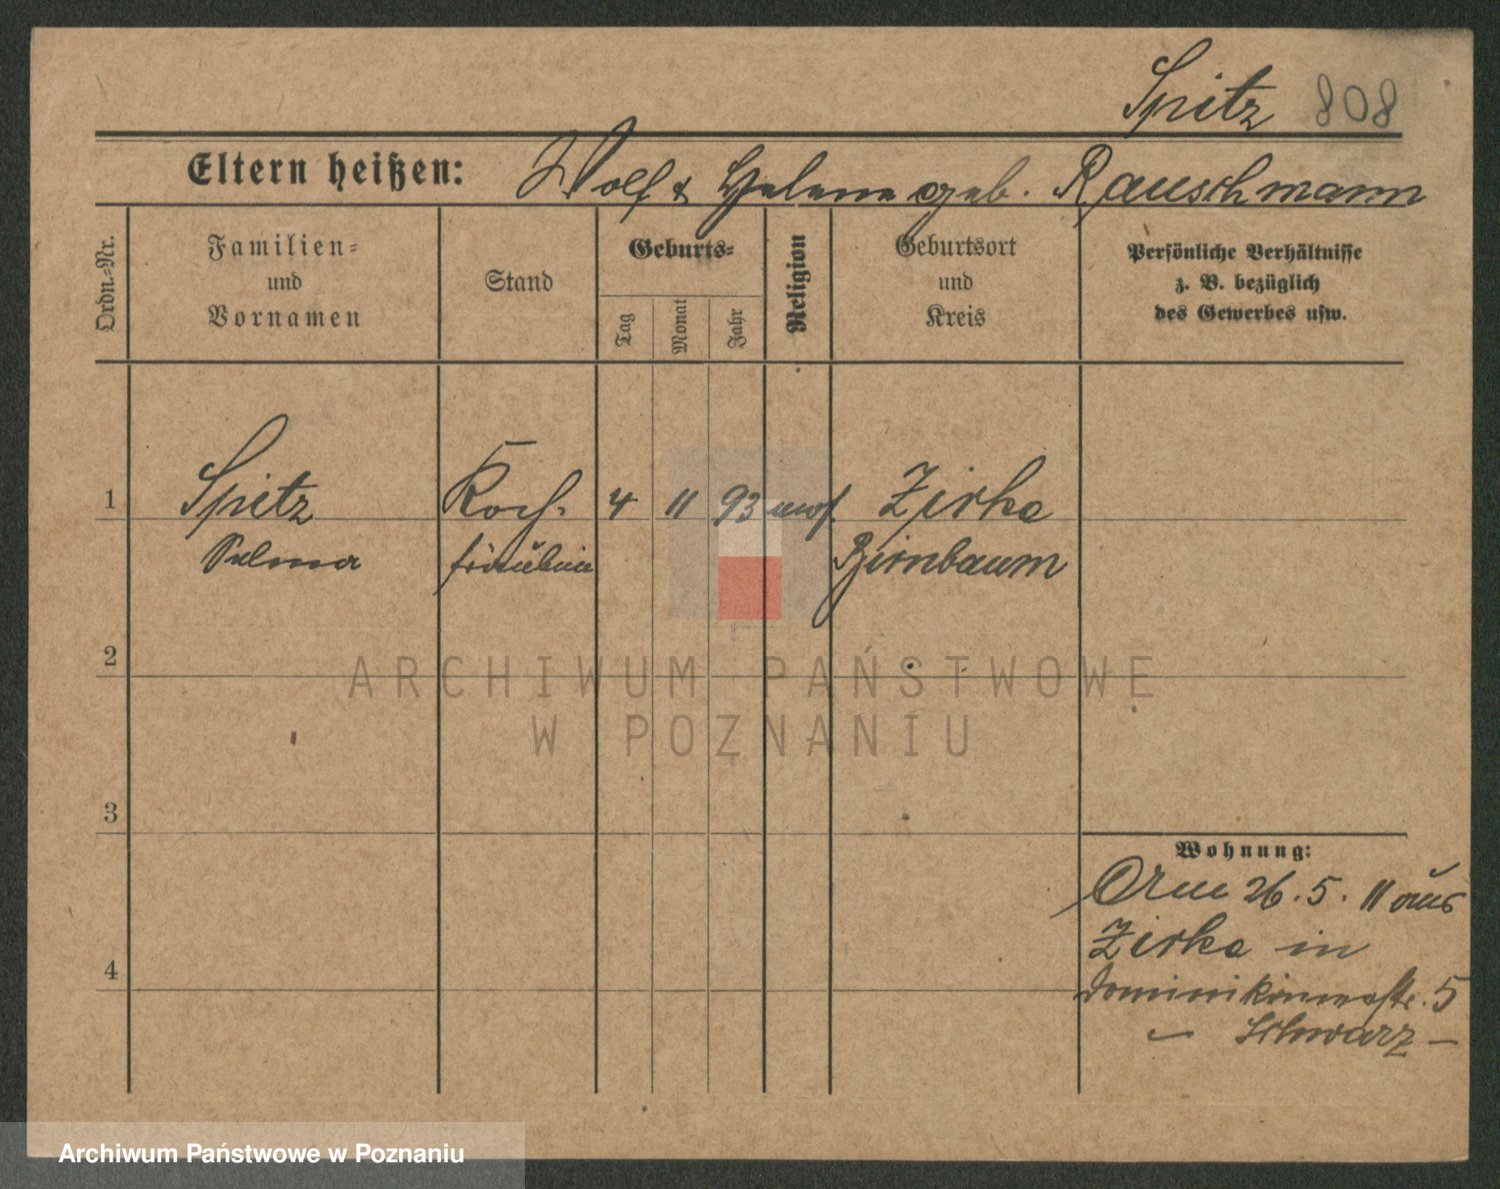 Spitz 808
Eltern heißen: Wolf & Helene geb. Rauschmann
Ordn.-Nr.
Familien-
und
Vornamen
Stand
Geburts-
Tag
Monat
Jahr
Religion
Geburtsort
und
Kreis
Persönliche Verhältnisse
z. B. bezüglich
des Gewerbes usw.
1 Spitz Koch- 4 11 93 mos Zirke
Selma fräulein Birnbaum
2
ARCHIWUM PAŃSTWOWE
W POZNANIU
3
Wohnung:
Am 26.5.11 aus
Zirke in
4
Dominikanerstr. 5
- Schwarz -
Archiwum Państwowe w Poznaniu